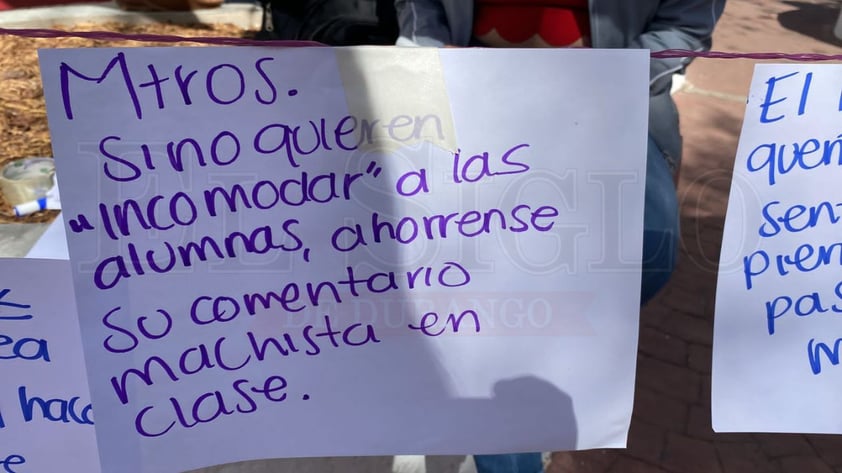 Mtros.
Si no quieren
"Incomodar" a las
alumnas, ahorrense
su comentario
machista en
clase.
El
quer
sent
pren
pas
m
ea
hac
e
EL SIGLO
DE DURANGO